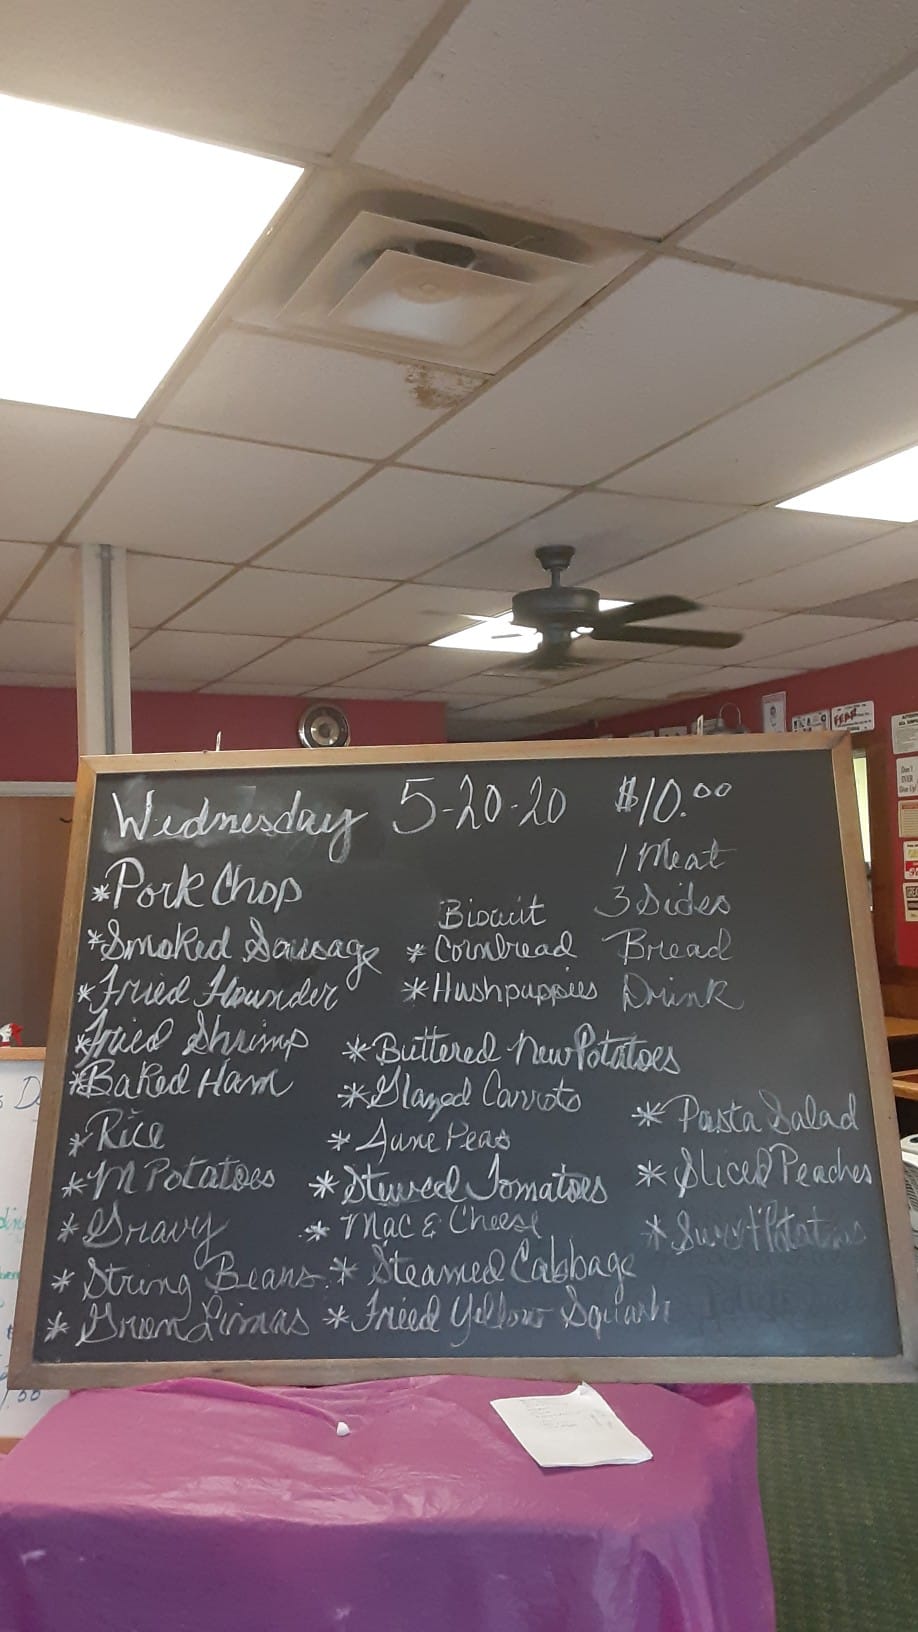 Wednesday 5-20-20 $10.00
1 Meat
3 Sides
Bread
Drink
*Pork Chop
*Smoked Sausage
*Fried Flounder
*Fried Shrimp
*Baked Ham
*Rice
*M Potatoes
*Gravy
*String Beans
*Green Limas
Biscuit
*Cornbread
*Hushpuppies
*Buttered New Potatoes
*Glazed Carrots
*June Peas
*Stewed Tomatoes
*Mac & Cheese
*Steamed Cabbage
*Fried Yellow Squash
*Pasta Salad
*Sliced Peaches
*Sweet Potatoes
FEAR
Don't
EVER
Give Up!